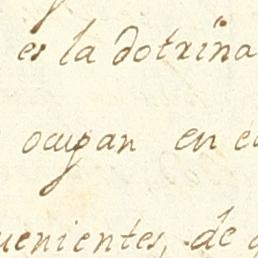 es la dotrina
ocupan en
uenientes, de